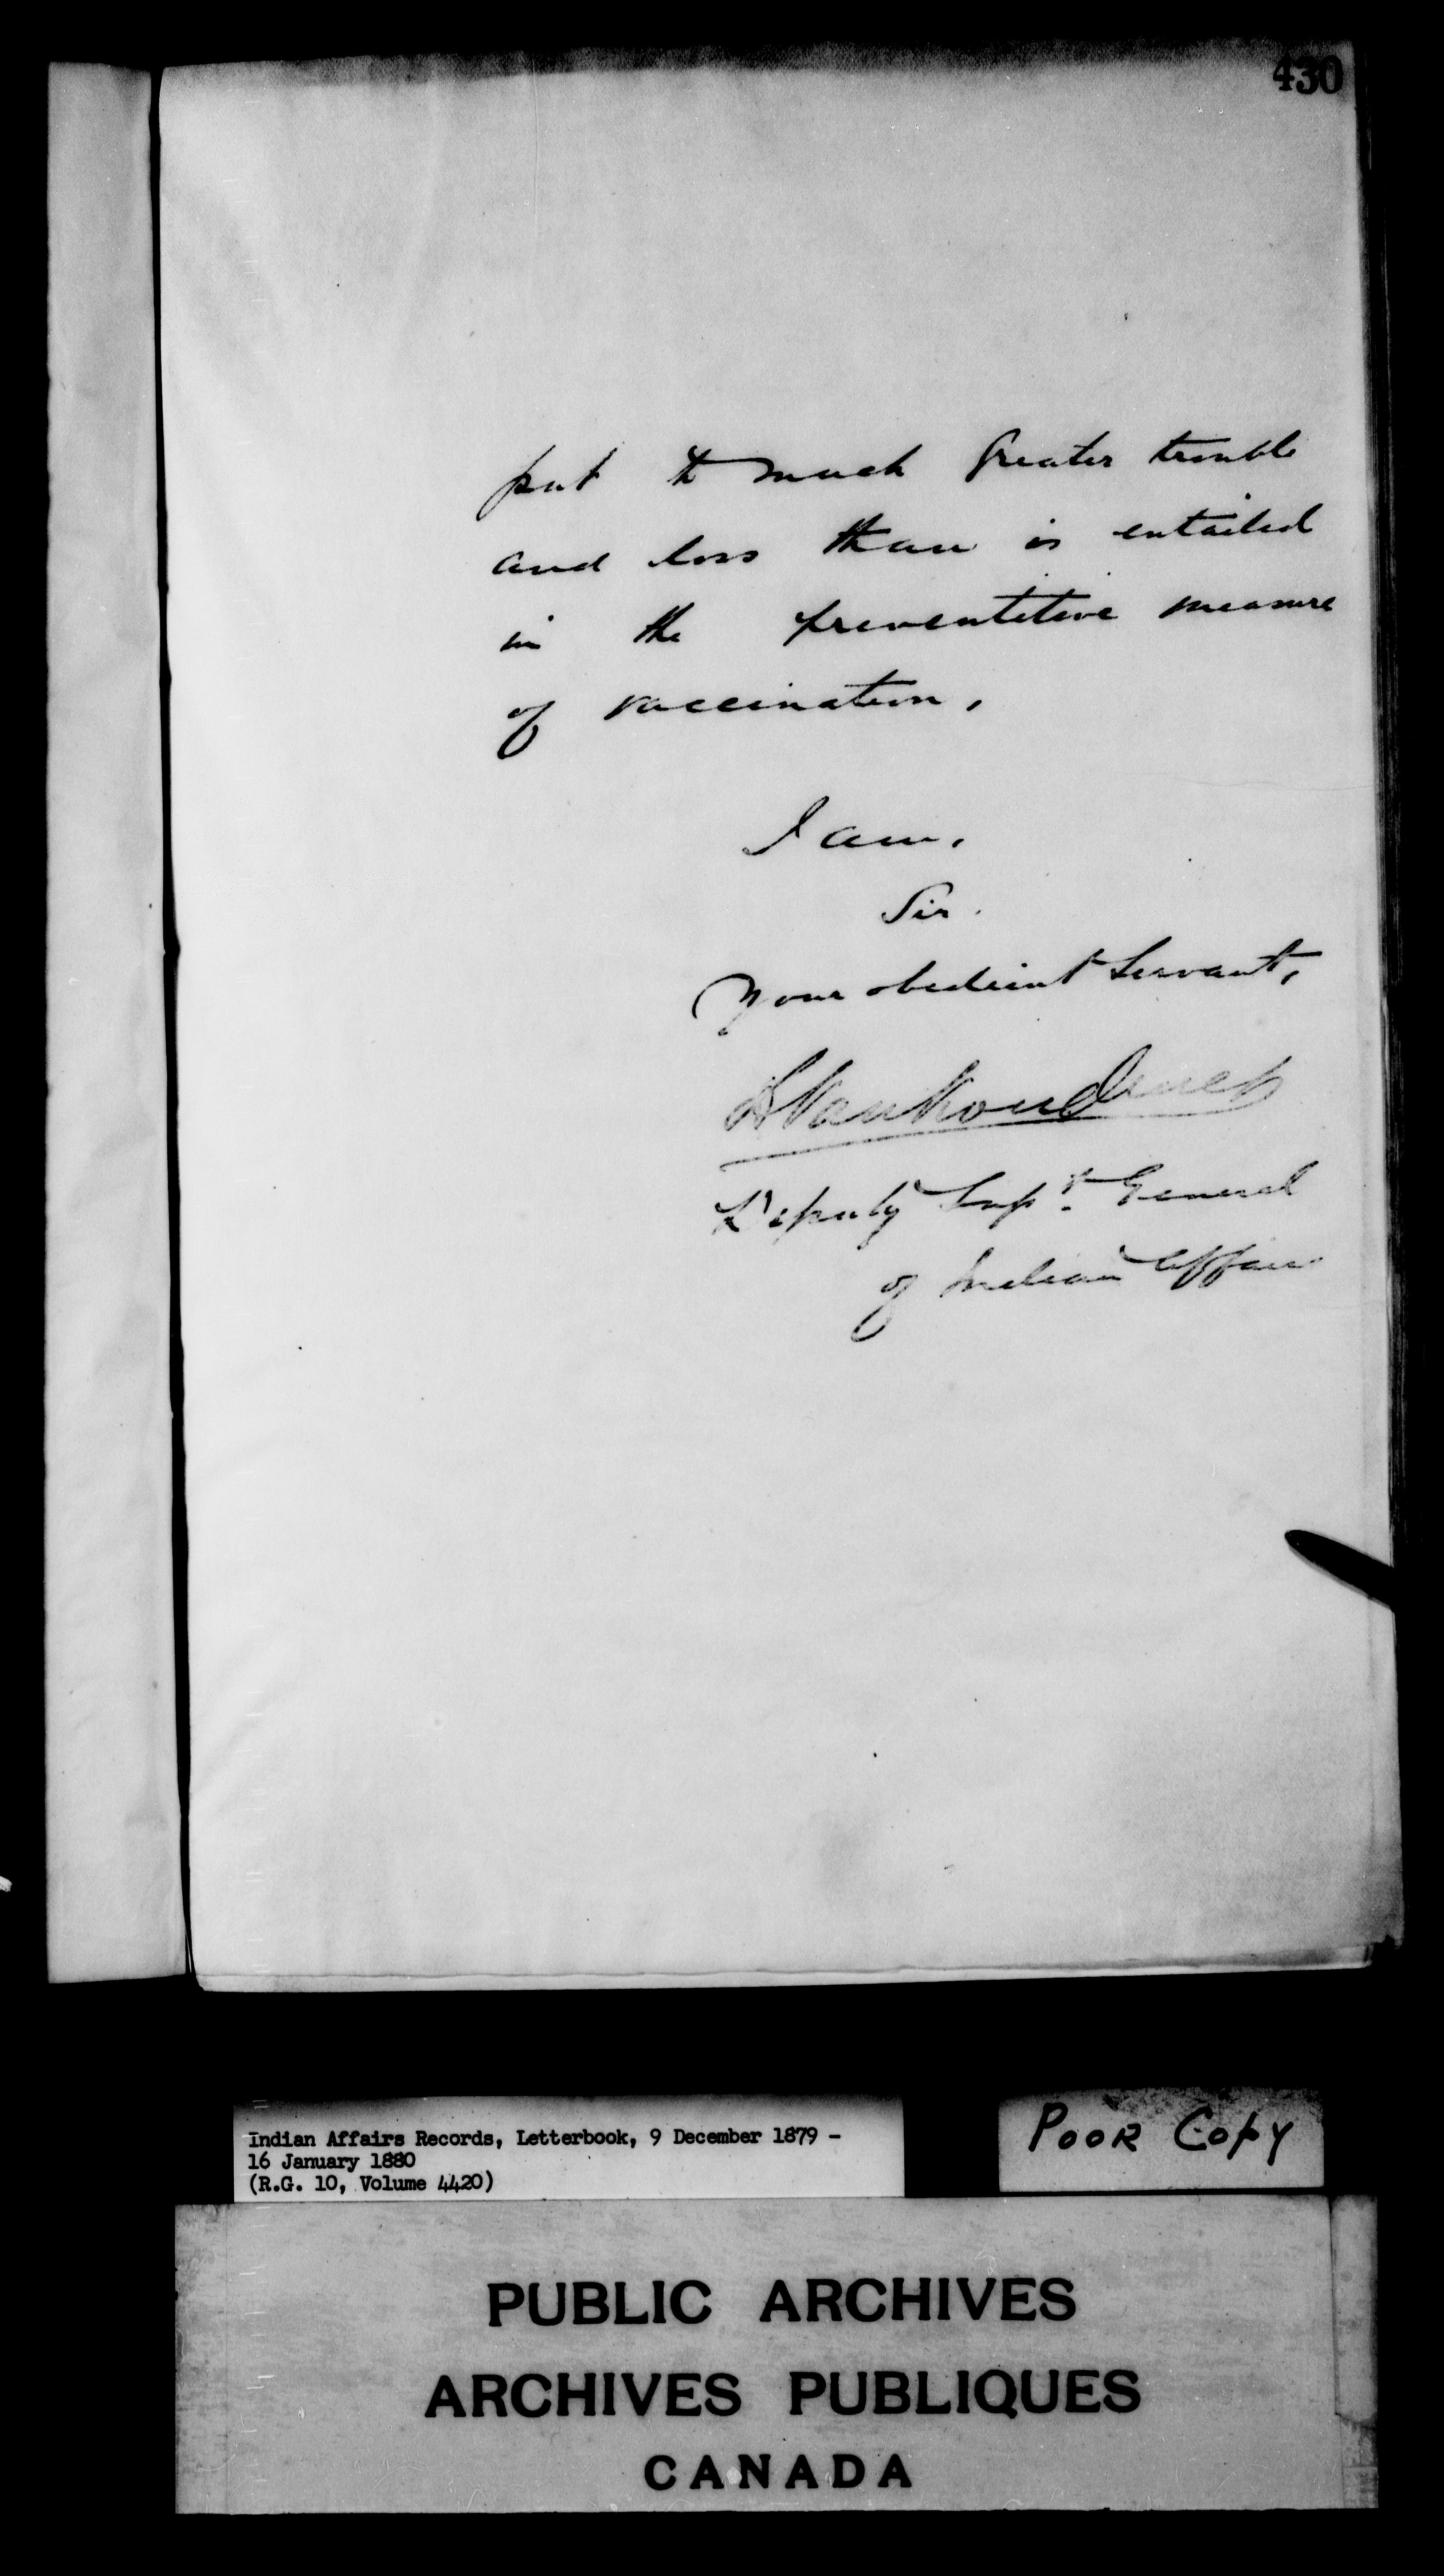 430
put to much greater trouble
and loss than is entailed
in the preventitive measure
of vaccination,
I am,
Sir.
Your obedient Servant,
L VanKoughnet
Deputy Supt. General
of Indian Affairs
Indian Affairs Records, Letterbook, 9 December 1879 -
16 January 1880
(R.G. 10, Volume 4420)
POOR COPY
PUBLIC ARCHIVES
ARCHIVES PUBLIQUES
CANADA